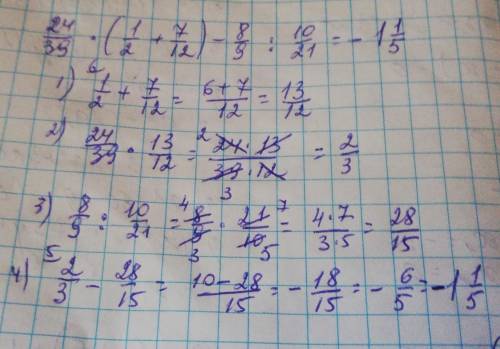 24/39 · (1/2 + 7/12) - 8/9 : 10/21 = - 1 1/5
1) 6 1/2 + 7/12 = 6+7/12 = 13/12
2) 24/39 · 13/12 = 2 24·13/39·12 3 = 2/3
3) 8/9 : 10/21 = 4 8/9 3 · 21/10 7 5 = 4·7/3·5 = 28/15
4) 5 2/3 - 28/15 = 10-28/15 = - 18/15 = - 6/5 = -1 1/5